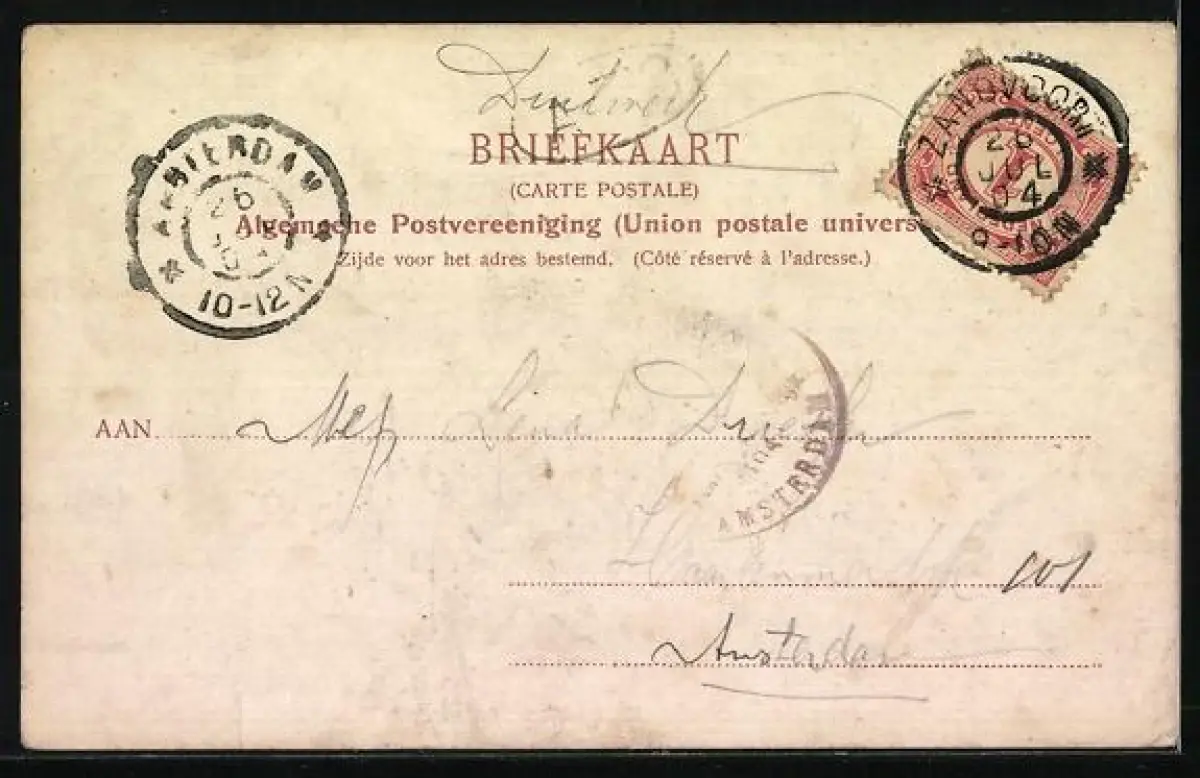 BRIEFKAART
(CARTE POSTALE)
Algemeene Postvereeniging (Union postale univers
Zijde voor het adres bestemd. (Côté réservé à l'adresse.)
AMSTERDAM
10-12 N
ZANDVOORT
JUL
04
9-10N
AAN Mej Lena
AMSTERDAM
101
Amsterdam